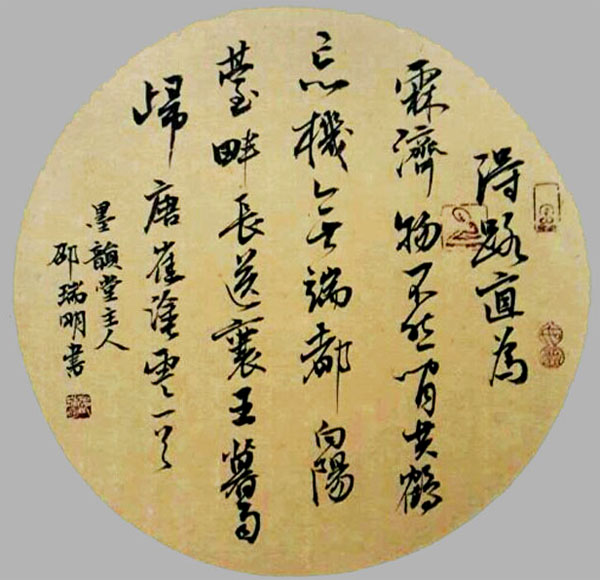 得路直為
霖濟物不然閒共鶴
忘機無端都向陽
臺畔長送襄王暮雨
歸唐崔塗雲一首
墨韻堂主人
邵瑞明書